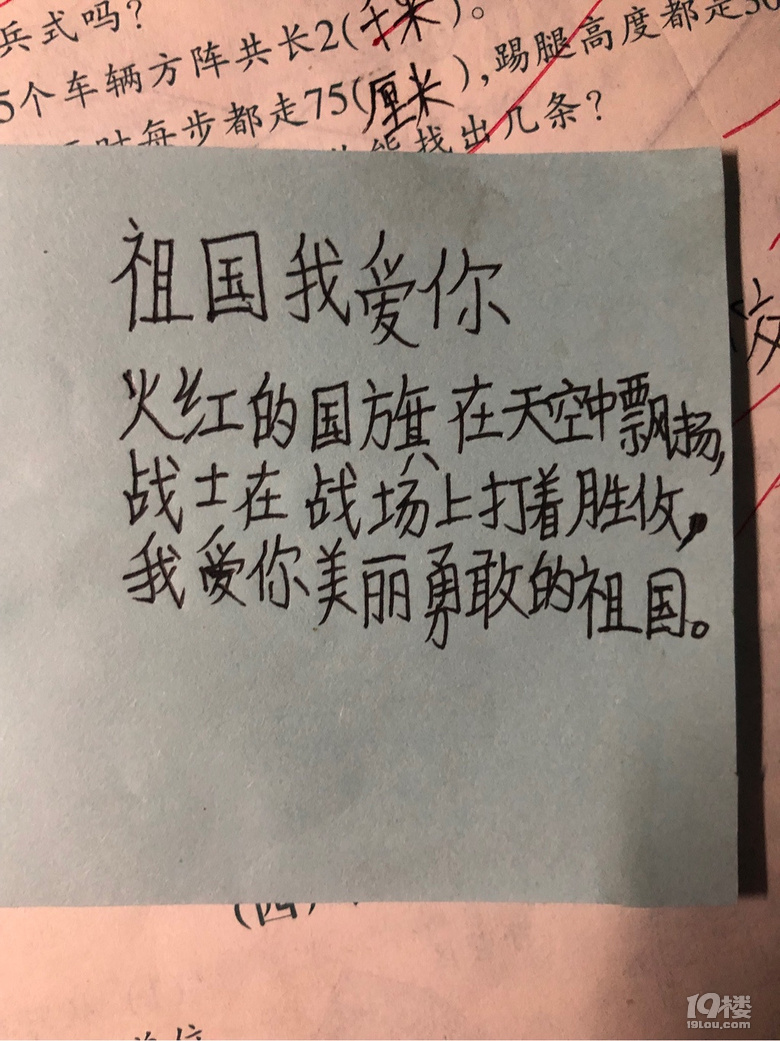 兵式吗?
5个车辆方阵共长2(千米)。
每步都走75(厘米),踢腿高度都走30
能找出几条?
祖国我爱你
火红的国旗在天空中飘扬,
战士在战场上打着胜仗,
我爱你美丽勇敢的祖国。
(四)
19楼
19lou.com